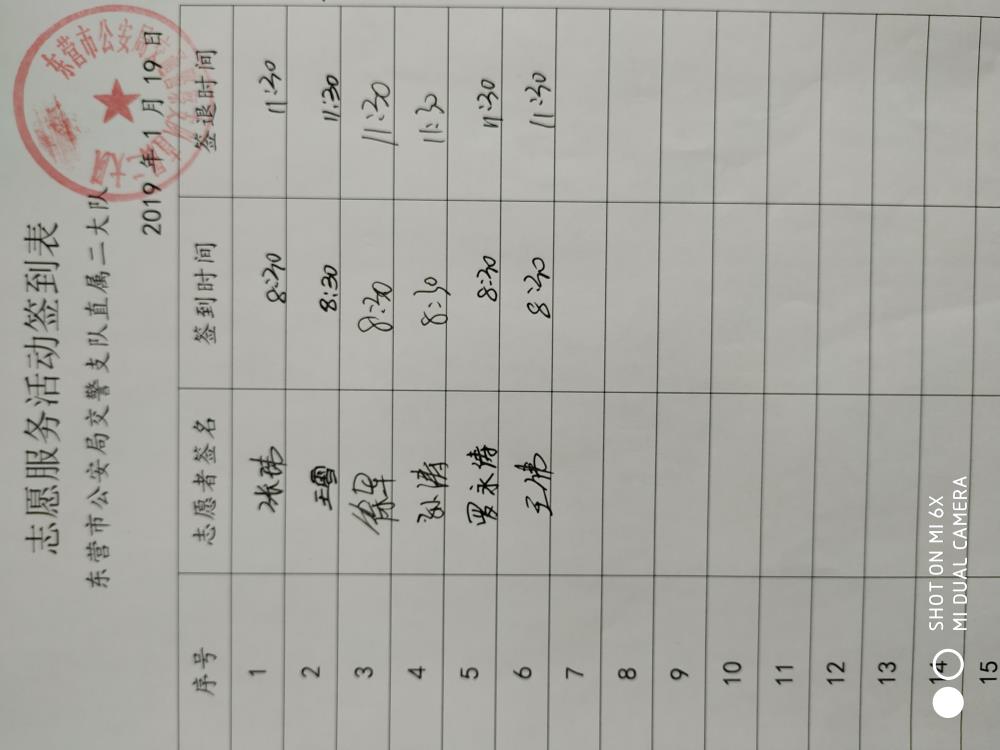 志愿服务活动签到表
东营市公安局交警支队直属二大队
2019 年 1 月 19 日
序号 志愿者签名 签到时间 签退时间
1 张伟 8:30 11:30
2 王雪 8:30 11:30
3 徐军 8:30 11:30
4 孙涛 8:30 11:30
5 罗永倩 8:30 11:30
6 王伟 8:30 11:30
7
8
9
10
11
12
13
14
15
东营市公安局
SHOT ON MI 6X
MI DUAL CAMERA